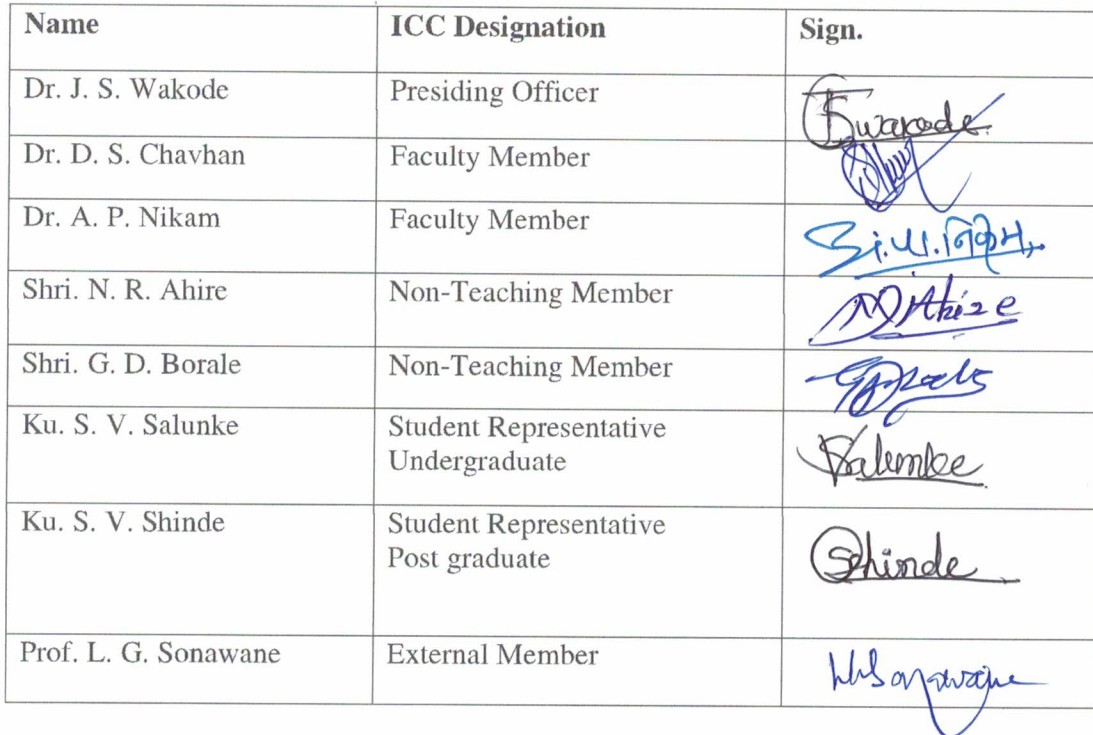 Name ICC Designation Sign.
Dr. J. S. Wakode Presiding Officer JSWakode
Dr. D. S. Chavhan Faculty Member
Dr. A. P. Nikam Faculty Member अं.पा.निकम
Shri. N. R. Ahire Non-Teaching Member NAhire
Shri. G. D. Borale Non-Teaching Member
Ku. S. V. Salunke Student Representative Salunke
Undergraduate
Ku. S. V. Shinde Student Representative Shinde
Post graduate
Prof. L. G. Sonawane External Member LGSonawane